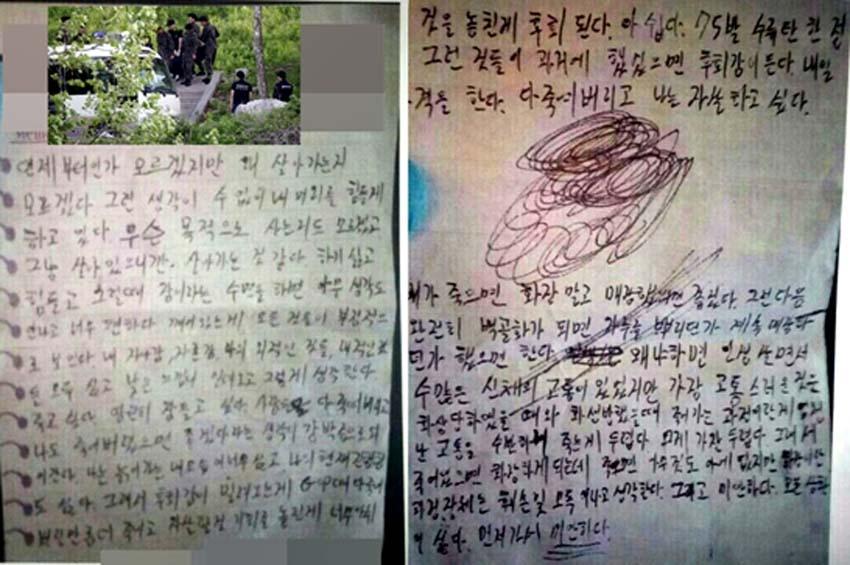 언제부터인가 모르겠지만 왜 살아가는지
모르겠다 그런 생각이 수 없이 내 머리를 힘들게
하고 있다 무슨 목적으로 사는지도 모르겠고
그냥 살아있으니깐 살아가는 것 같다 하기 싫고
힘들고 그럴때 잠이라는 수면을 하면 아무 생각도
안나고 너무 편하다 깨어있는게 모든 것들이 부정적으
로 보인다 내 자존감 자존감 나의 외적인 것들, 내적인
모두 싫고 그렇게 생각한다
죽고 싶다 영원히 잠들고 싶다 사람들을 다 죽여버리고
나도 죽어버렸으면 좋겠다라는 생각이 강박으로 되
나는 늙어가는 내 모습이 너무 싫고 나의 현재
도 싫다. 그래서 후회감이 밀려오는게 GOP때 다 죽여
버릴만큼 더 죽이고 자살할 기회를 놓친게 너무 아쉽
것을 놓친게 후회 된다. 아 쉽다. 75발 수류탄 한 정
그런 것들이 과거에 했었으면 후회감이 든다. 내일
격을 한다. 다 죽여버리고 나는 자살하고 싶다.
내가 죽으면 화장 말고 매장했으면 좋겠다. 그런다음
완전히 백골화가 되면 가루를 뿌리던가 계속 매장하
던가 했으면 한다. 왜냐하면 인생 살면서
수많은 신체의 고통이 있었지만 가장 고통스러운 것은
화상당하였을 때와 화생방했을때 죽어가는 과정이란게
난 고통을 수반하며 죽는게 두렵다. 그게 가장 두렵다 그래서
죽어있으면 화장하게 되는데 죽으면 아무것도 아예 없지만
과정 자체는 훼손 및 모독이라고 생각한다. 그리고 미안하다. 모든 상황
이 싫다. 먼저가서 미안하다.